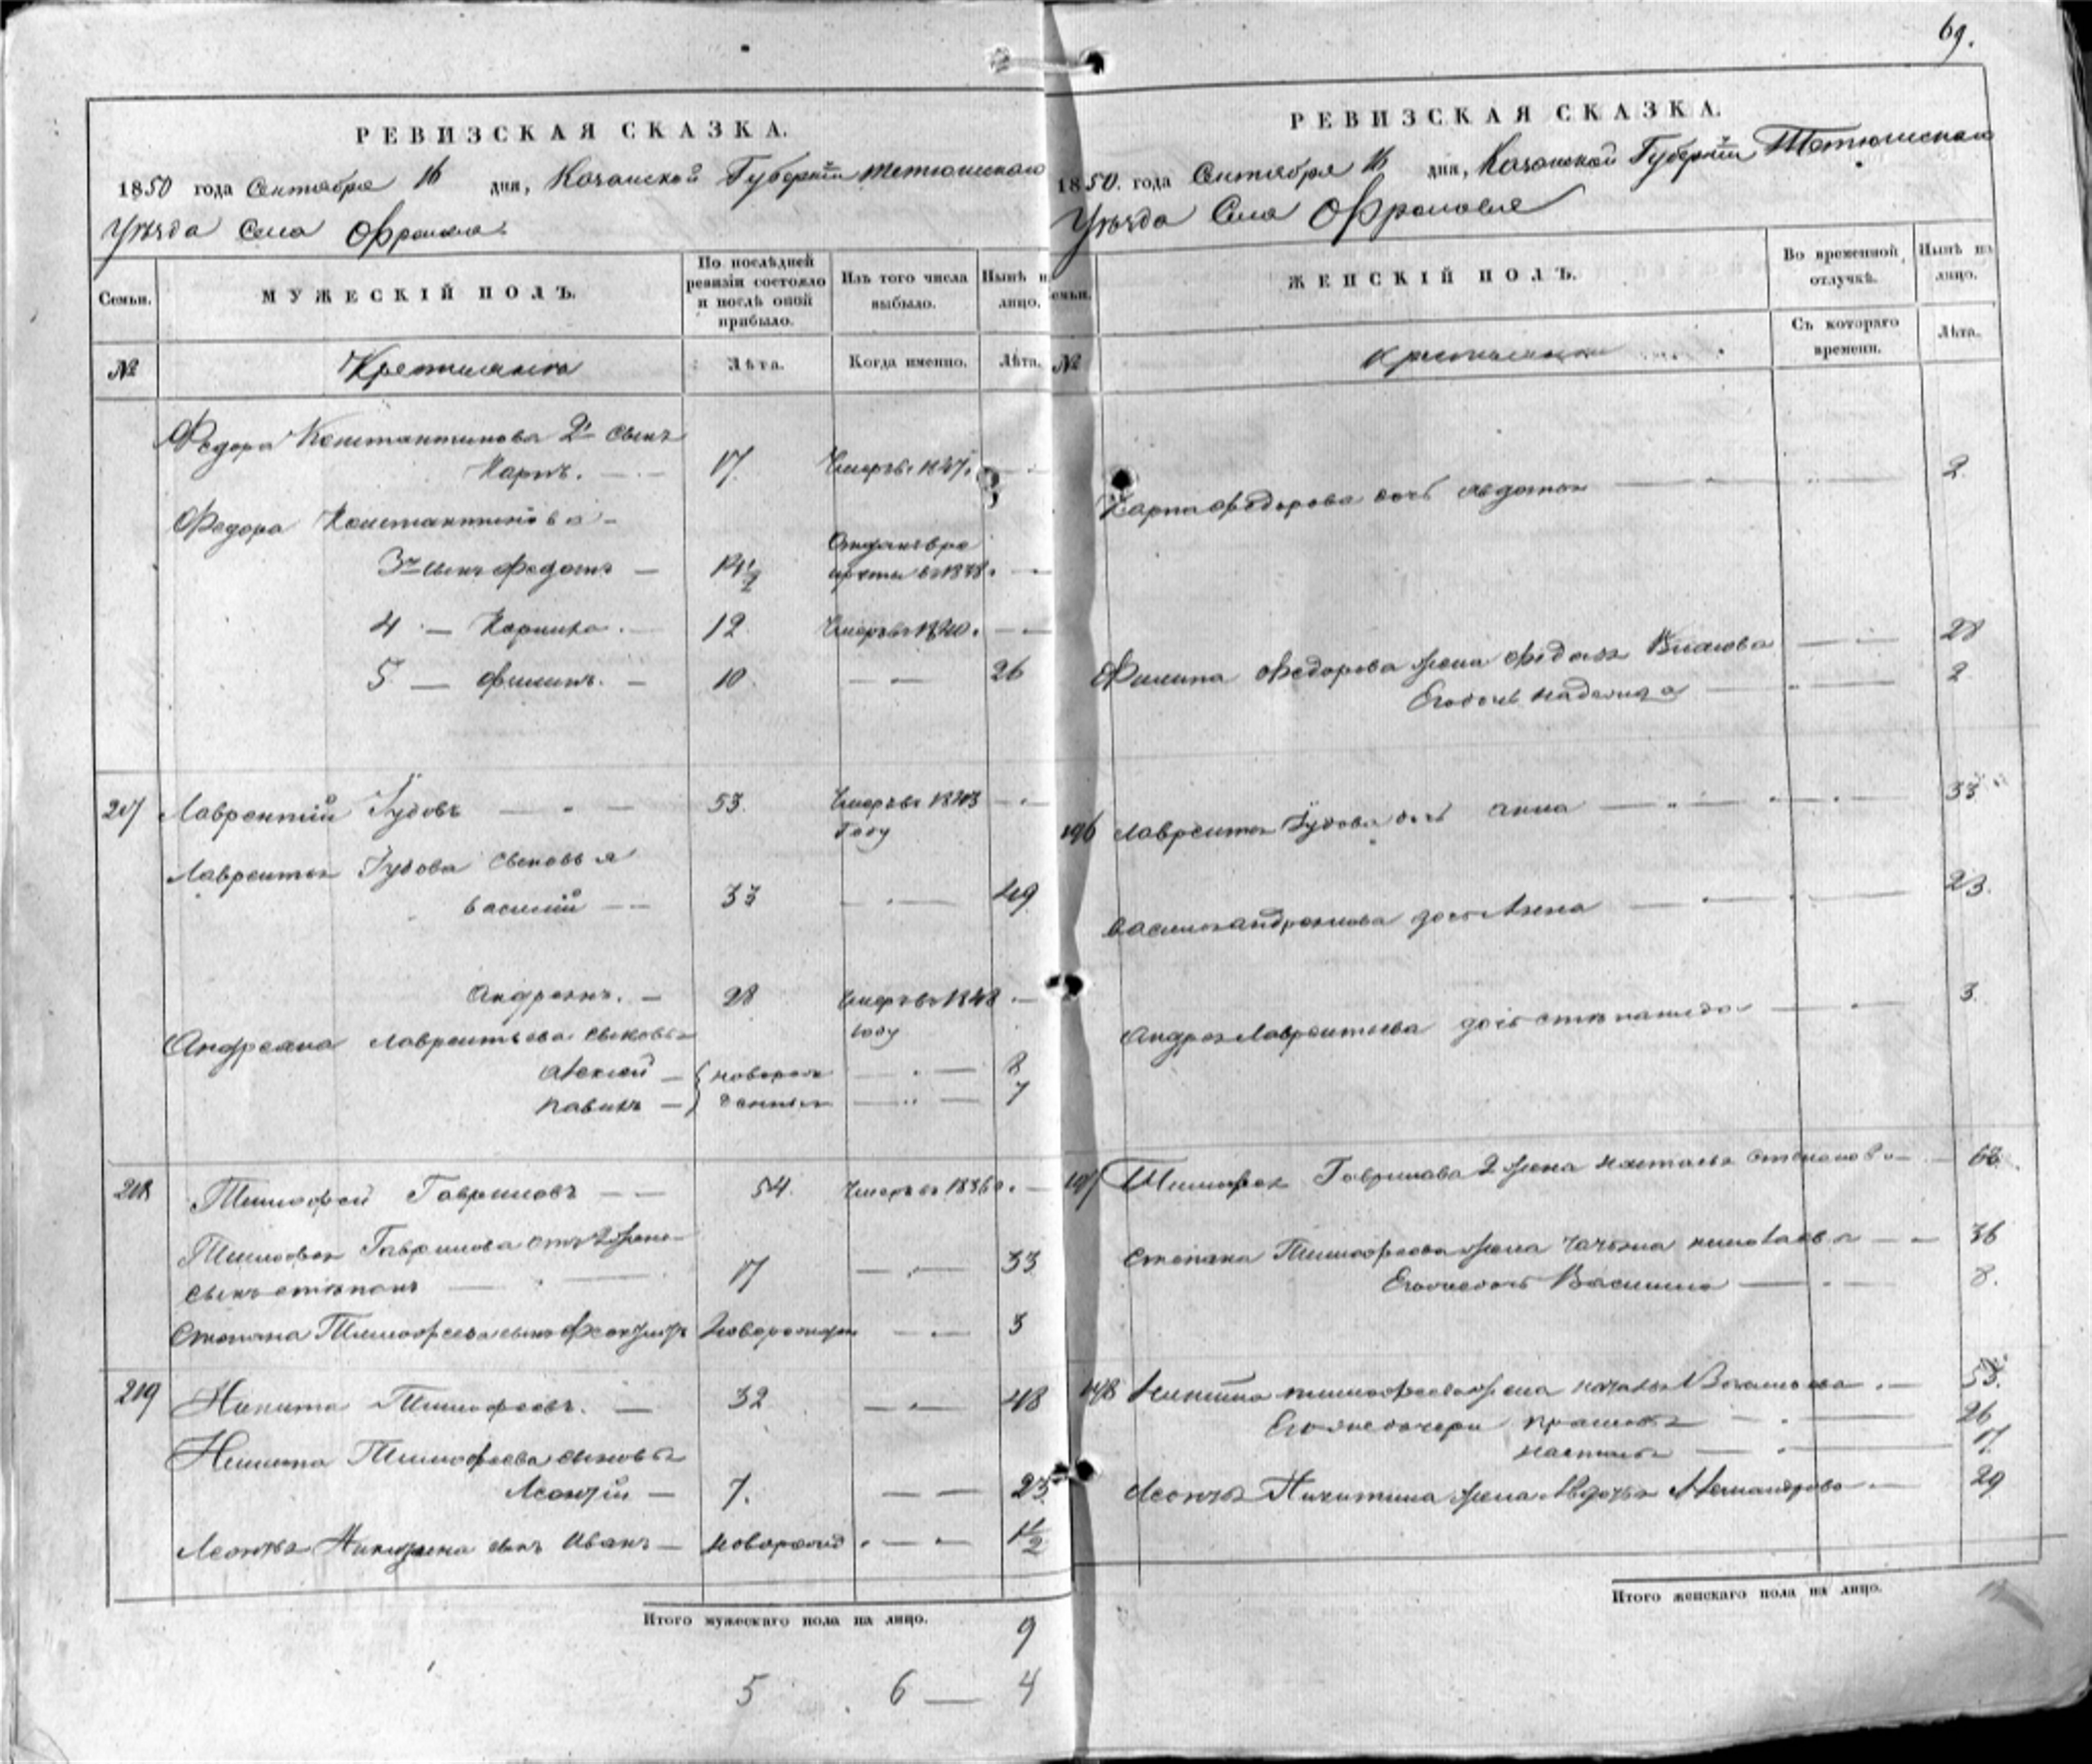 69.
РЕВИЗСКАЯ СКАЗКА.
1850 года Сентября 16 дня, Казанской Губерніи Тетюшскаго
Уѣзда Села
Семьи.
МУЖЕСКІЙ ПОЛЪ.
По послѣдней ревизіи состояло и послѣ оной прибыло.
Изъ того числа выбыло.
Нынѣ на лицо.
№
Крестьяне
Лѣта.
Когда именно.
Лѣта.
Федора Константинова 2й сынъ
Карпъ. 17 Умеръ въ 1847.
Федора Константинова
3й сынъ Федотъ — 14½ въ 1848.
4 — 12 Умеръ въ 1840.
5 — Филипъ. — 10 — 26
217 Лаврентій Іудовъ — 53. Умеръ въ 1843
Году
Лаврентья Іудова сыновья
Василій — 33 — 49
Андреянъ. — 28 Умеръ въ 1848
Году
Андреяна Лаврентьева сыновья
Алексей — новорож — 8
Павилъ — денныя — 7
218 Тимофей Гавриловъ — 54. Умеръ въ 1836
Тимофея Гаврилова отъ 2 жены
сынъ Степанъ — 17 — 33
Степана Тимофеева сынъ Новорожден — 3
219 Никита Тимофеевъ. — 32 — 48
Никита Тимофеева сыновья
Леонтій — 7. — 23.
Леонтья Никитина сынъ Иванъ — Новорожд — 1½
Итого мужескаго пола на лицо.
9
5 6 — 4
РЕВИЗСКАЯ СКАЗКА.
1850. года Сентября 16 дня, Казанской Губерніи Тетюшскаго
Уѣзда Села
Семьи.
ЖЕНСКІЙ ПОЛЪ.
Во временной отлучкѣ.
Нынѣ на лицо.
№
Съ котораго времени.
Лѣта.
Карпа Федорова дочь Авдотья — 2.
Филипа Федорова жена — 28
Его дочь — 2
196 Лаврентья Іудова дочь Анна — 33
дочь Анна — 23.
Лаврентьева дочь Степанида — 3.
197 Тимофея Гаврилова 2 жена Настасья Степанова — 68
Степана Тимофеева жена Татьяна Николаева — 36
Его же дочь — 8.
198 Никита Тимофеева жена — 53.
Его же дочери — 26
Настасья — 17.
Леонтья Никитина жена Авдотья — 29
Итого женскаго пола на лицо.